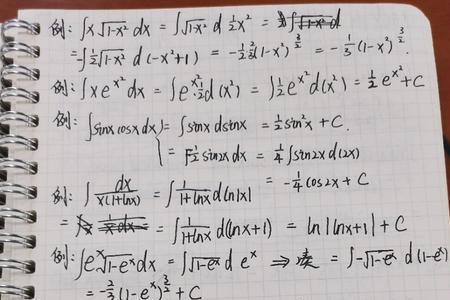 例: ∫x√(1-x²) dx = ∫√(1-x²) d ½x² =
= -∫½√(1-x²) d(-x²+1) = -½·⅔(1-x²)^(3/2) = -⅓(1-x²)^(3/2)
例: ∫xe^(x²) dx = ∫e^(x²)·½d(x²) = ∫½e^(x²)d(x²) = ½e^(x²)+C
例: ∫sinx cosx dx = ∫sinx dsinx = ½sin²x + C.
= ∫½sin2x dx = ¼∫sin2x d(2x)
= -¼cos2x + C
例: ∫dx/(x(1+lnx)) = ∫1/(1+lnx) dln|x|
= ∫1/(1+lnx) d(lnx+1) = ln|lnx+1| + C
例: ∫e^x√(1-e^x)dx = ∫√(1-e^x) d e^x ⇒ 凑 = ∫-√(1-e^x) d(1-e^x)
= -⅔(1-e^x)^(3/2) + C